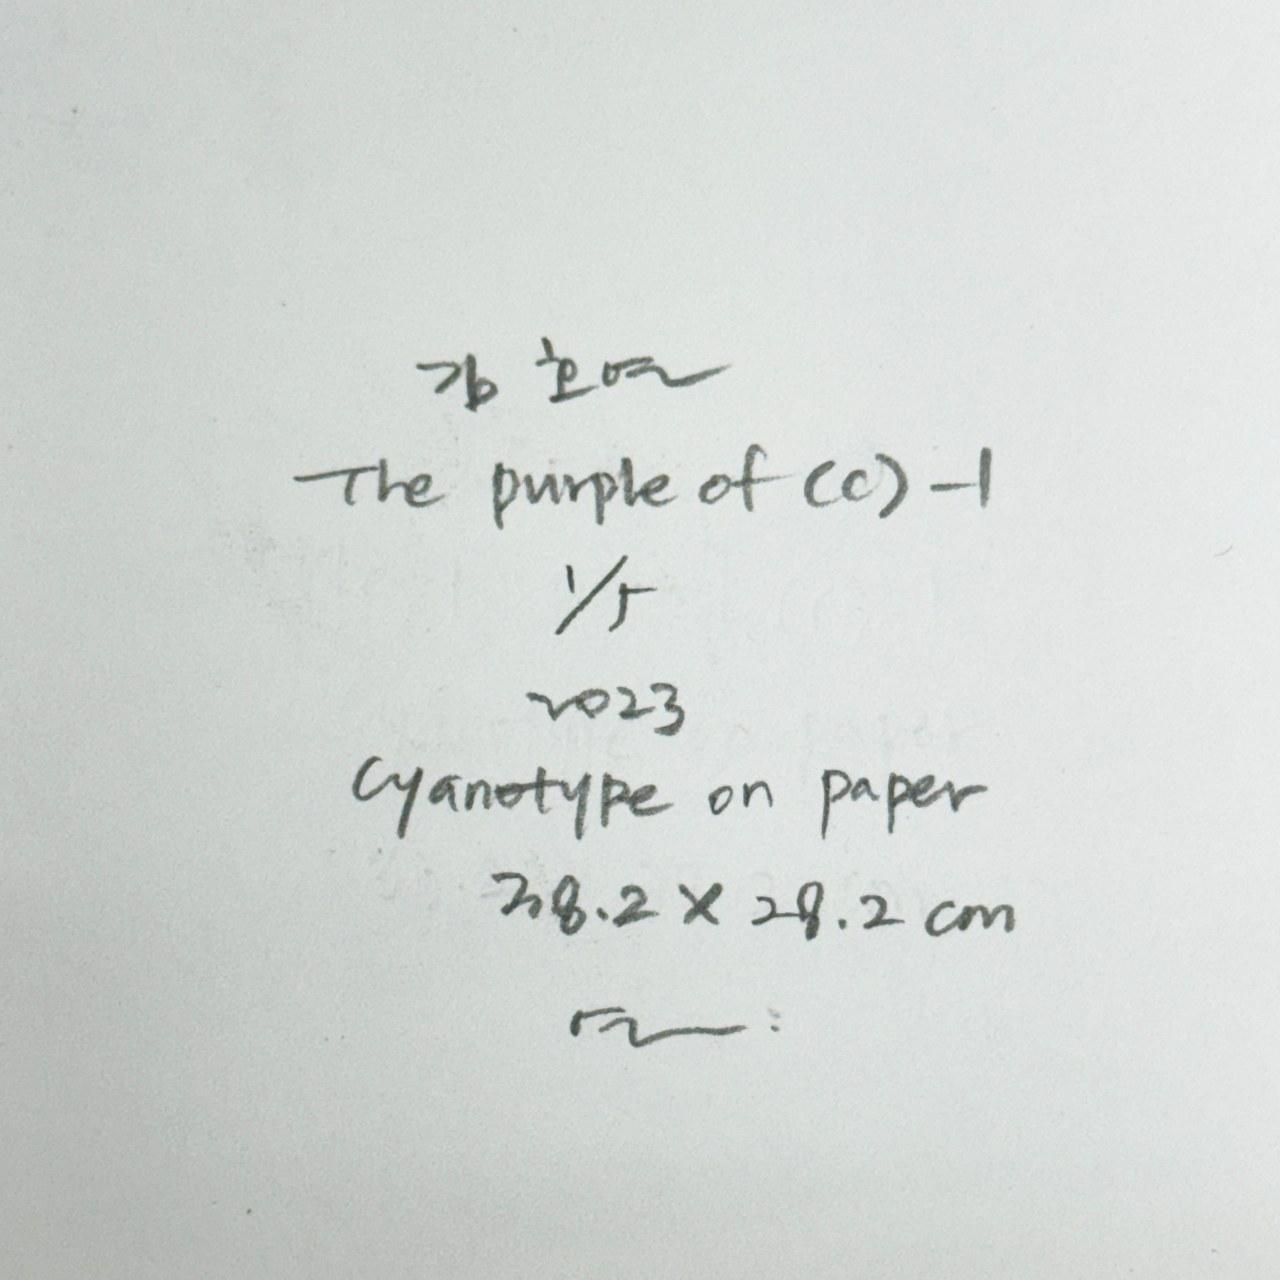 김호연
The purple of (c) -1
1/5
2023
Cyanotype on paper
38.2 × 28.2 cm